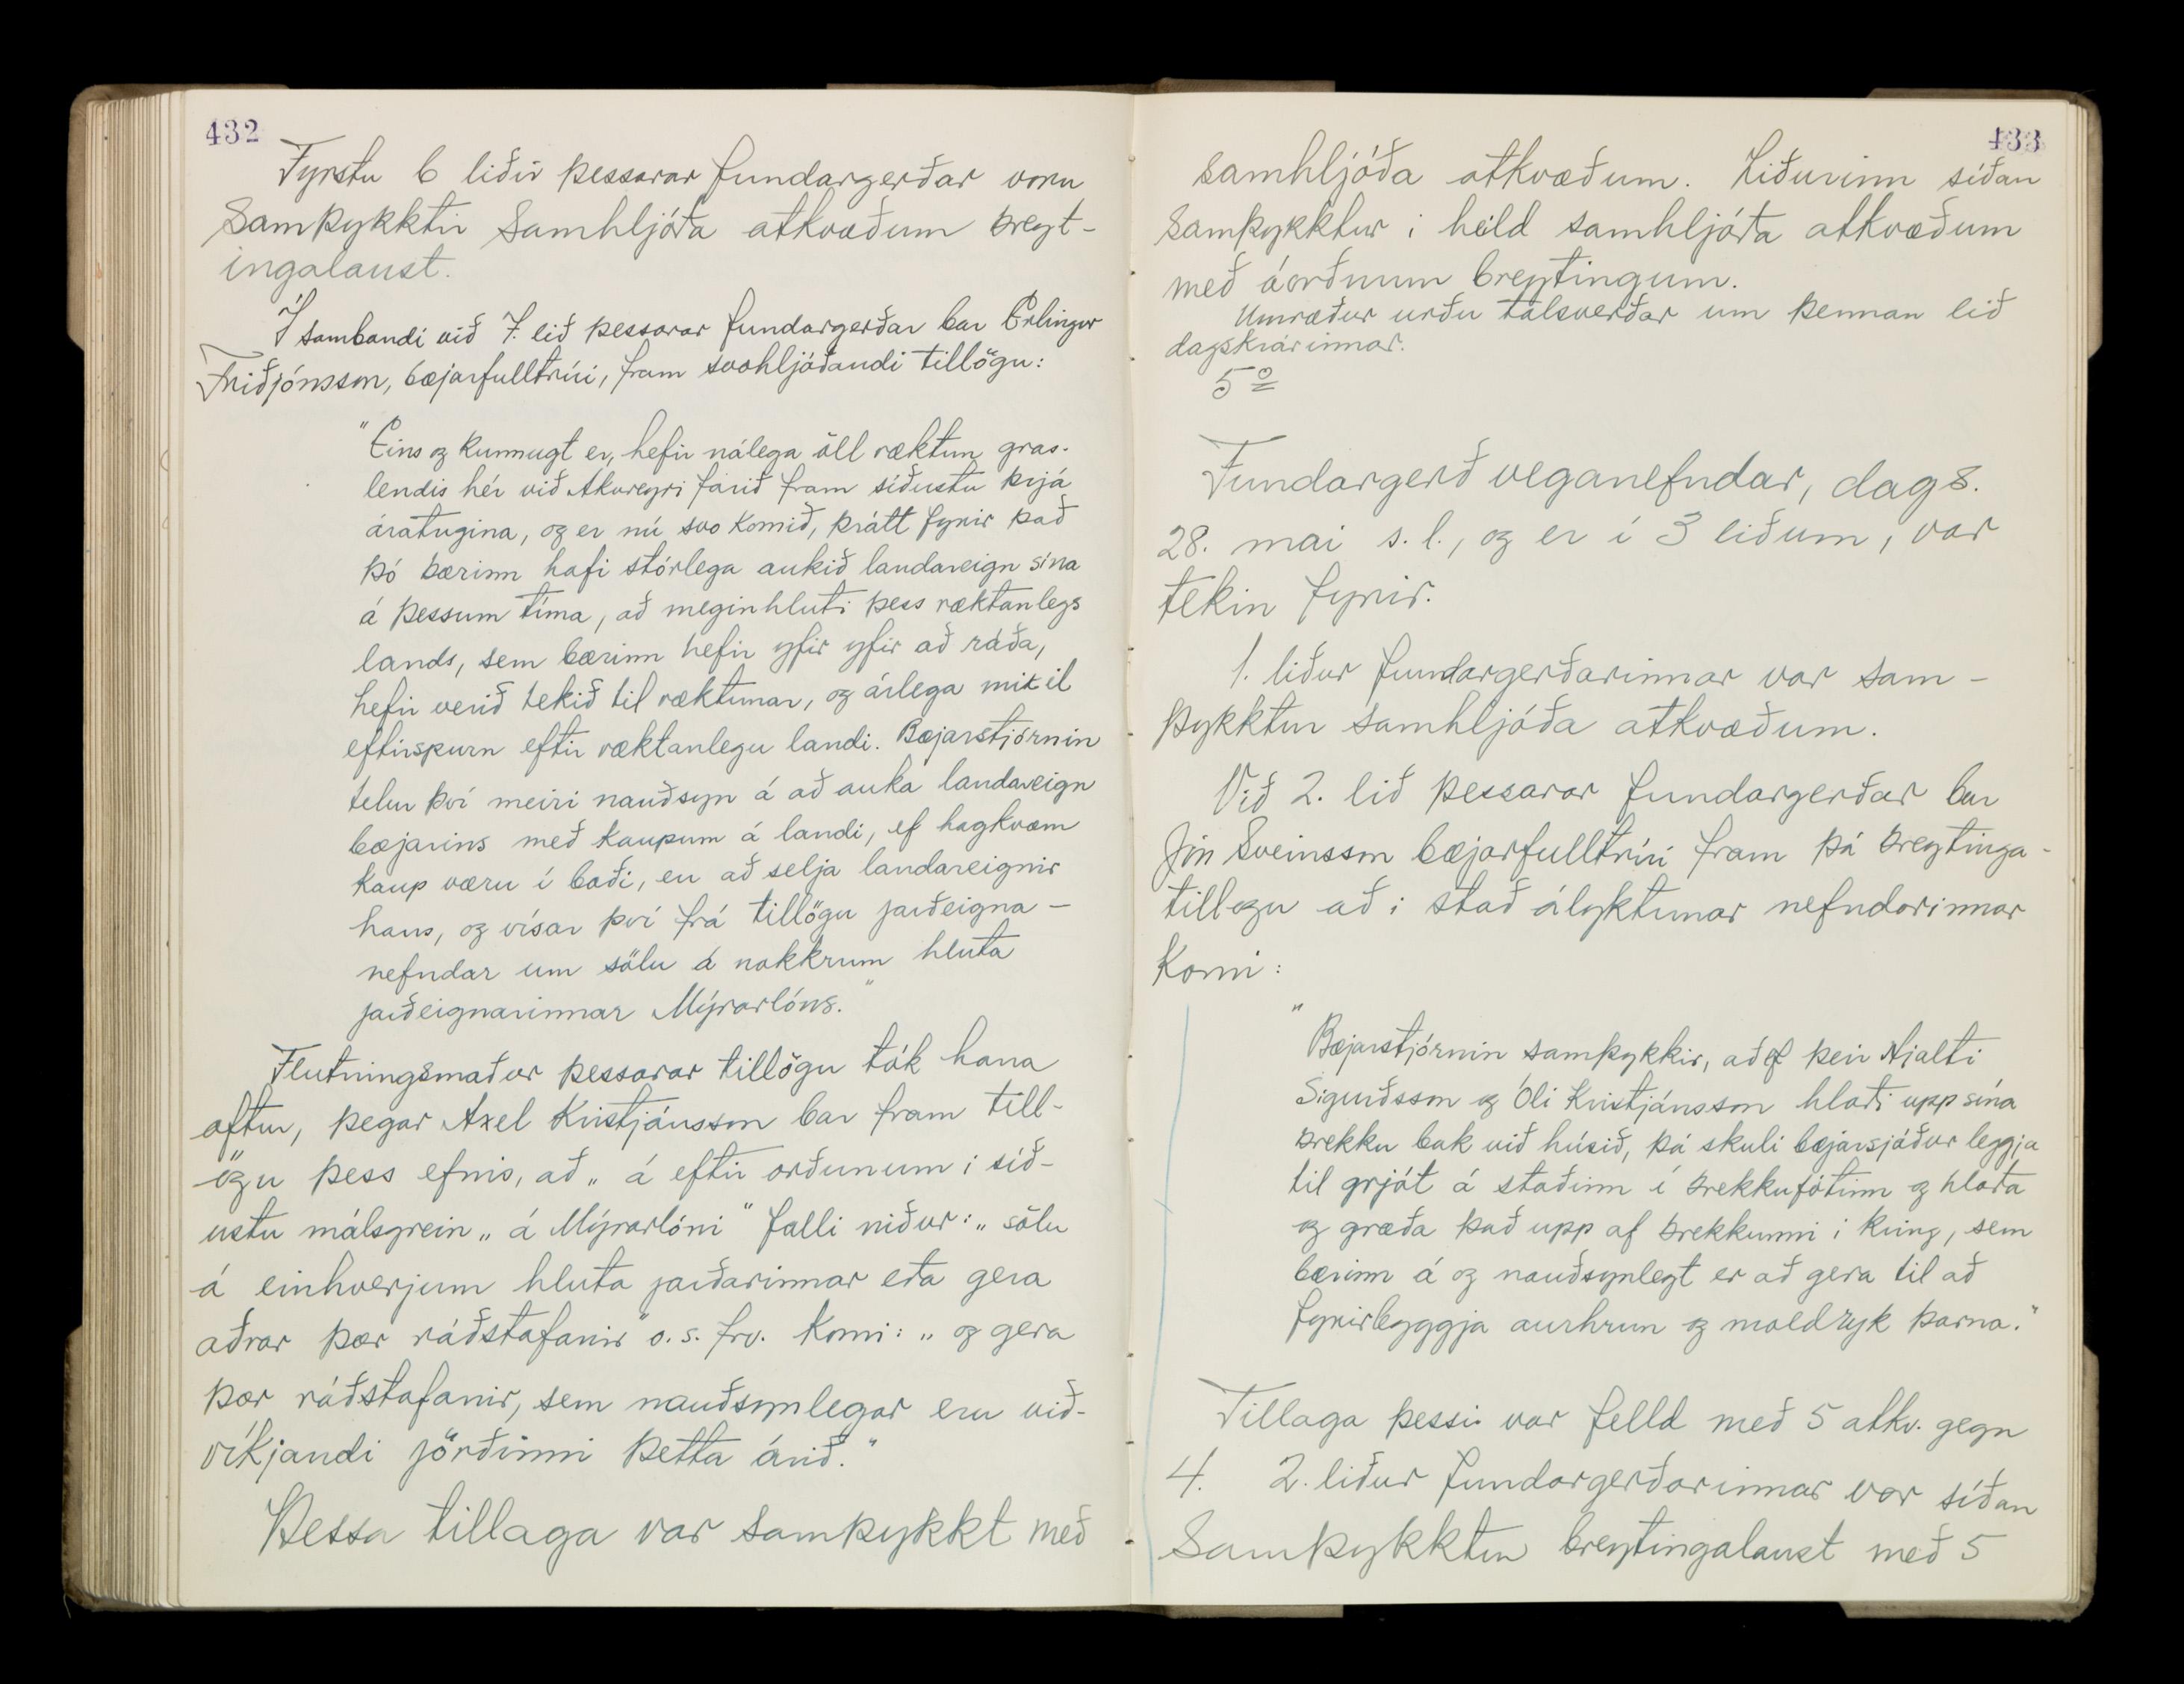 432
Fyrstu 6 liðir þessarar fundargerðar voru
samþykktir samhljóða atkvæðum breyt-
ingalaust.
Í sambandi við 7. lið þessarar fundargerðar bar Erlingur
Friðjónsson, bæjarfulltrúi, fram svohljóðandi tillögu:
"Eins og kunnugt er, hefir nálega öll ræktun gras-
lendis hér við Akureyri farið fram síðustu þrjá
áratugina, og er nú svo komið, þrátt fyrir það
þó bærinn hafi stórlega aukið landareign sína
á þessum tíma, að meginhluti þess ræktanlegs
lands, sem bærinn hefir yfir yfir að ráða,
hefir verið tekið til ræktunar, og árlega mikil
eftirspurn eftir ræktanlegu landi. Bæjarstjórnin
telur því meiri nauðsyn á að auka landareign
bæjarins með kaupum á landi, ef hagkvæm
kaup væru í boði, en að selja landareignir
hans, og vísar því frá tillögu jarðeigna-
nefndar um sölu á nokkrum hluta
jarðeignarinnar Mýrarlóns."
Flutningsmaður þessarar tillögu tók hana
aftur, þegar Axel Kristjánsson bar fram till-
ögu þess efnis, að „á eftir orðunum í síð-
ustu málsgrein „á Mýrarlóni" falli niður: „sölu
á einhverjum hluta jarðarinnar eða gera
aðrar þær ráðstafanir" o.s.frv. komi: „og gera
þær ráðstafanir, sem nauðsynlegar eru við-
víkjandi jörðinni þetta árið."
Þessa tillaga var samþykkt með
433
samhljóða atkvæðum. Liðurinn síðan
samþykktur í heild samhljóða atkvæðum
með áorðnum breytingum.
Umræður urðu talsverðar um þennan lið
dagskrárinnar.
5º
Fundargerð veganefndar, dags.
28. mai s.l., og er í 3 liðum, var
tekin fyrir.
1. liður fundargerðarinnar var sam-
þykktur samhljóða atkvæðum.
Við 2. lið þessarar fundargerðar bar
Jón Sveinsson bæjarfulltrúi fram þá breytinga-
tillögu að í stað ályktunar nefndarinnar
komi:
"Bæjarstjórnin samþykkir, að ef þeir Hjalti
Sigurðsson og Óli Kristjánsson hlaði upp sína
brekku bak við húsið, þá skuli bæjarsjóður leggja
til grjót á staðinn í brekkufótinn og hlaða
og græða það upp af brekkunni í kring, sem
bærinn á og nauðsynlegt er að gera til að
fyrirbyggja aurhrun og moldryk þarna."
Tillaga þessi var felld með 5 atkv. gegn
4. 2. liður fundargerðarinnar var síðan
samþykktur breytingalaust með 5